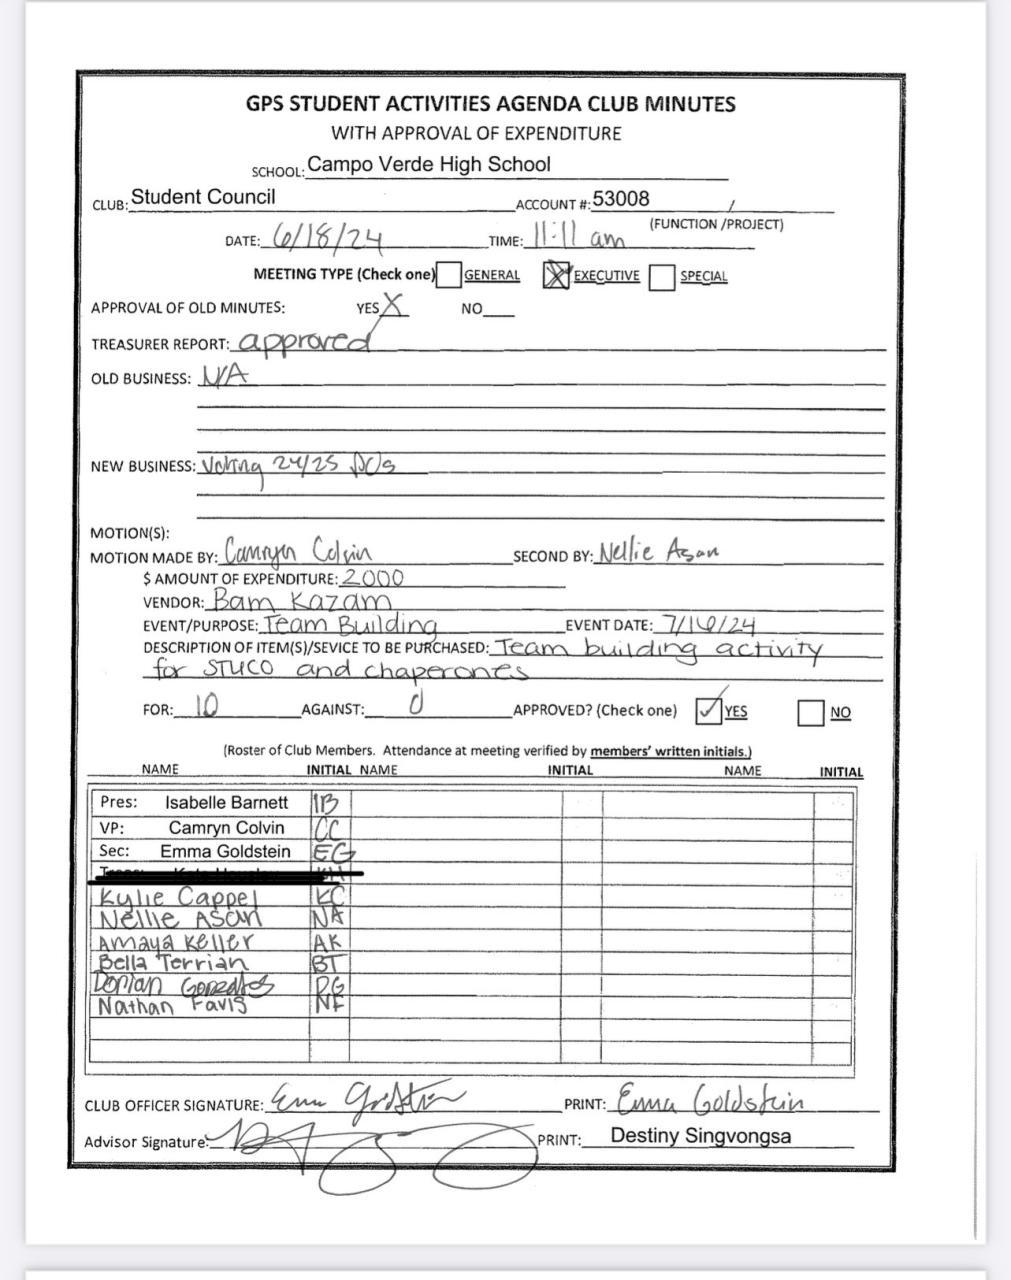 GPS STUDENT ACTIVITIES AGENDA CLUB MINUTES
WITH APPROVAL OF EXPENDITURE
SCHOOL: Campo Verde High School
CLUB: Student Council ACCOUNT #: 53008 /
(FUNCTION /PROJECT)
DATE: 6/18/24 TIME: 11:11 am
MEETING TYPE (Check one) GENERAL X EXECUTIVE SPECIAL
APPROVAL OF OLD MINUTES: YES X NO
TREASURER REPORT: approved
OLD BUSINESS: N/A
NEW BUSINESS: Voting 24/25 POs
MOTION(S):
MOTION MADE BY: Camryn Colvin SECOND BY: Nellie Asan
$ AMOUNT OF EXPENDITURE: 2000
VENDOR: Bam Kazam
EVENT/PURPOSE: Team Building EVENT DATE: 7/16/24
DESCRIPTION OF ITEM(S)/SEVICE TO BE PURCHASED: Team building activity
for STUCO and chaperones
FOR: 10 AGAINST: 0 APPROVED? (Check one) ✓ YES NO
(Roster of Club Members. Attendance at meeting verified by members' written initials.)
NAME INITIAL NAME INITIAL NAME INITIAL
Pres: Isabelle Barnett IB
VP: Camryn Colvin CC
Sec: Emma Goldstein EG
Kylie Cappel KC
Nellie Asan NA
Amaya Keller AK
Bella Terrian BT
Dorian Gonzales DG
Nathan Favis NF
CLUB OFFICER SIGNATURE: Emma Goldstein PRINT: Emma Goldstein
Advisor Signature: PRINT: Destiny Singvongsa